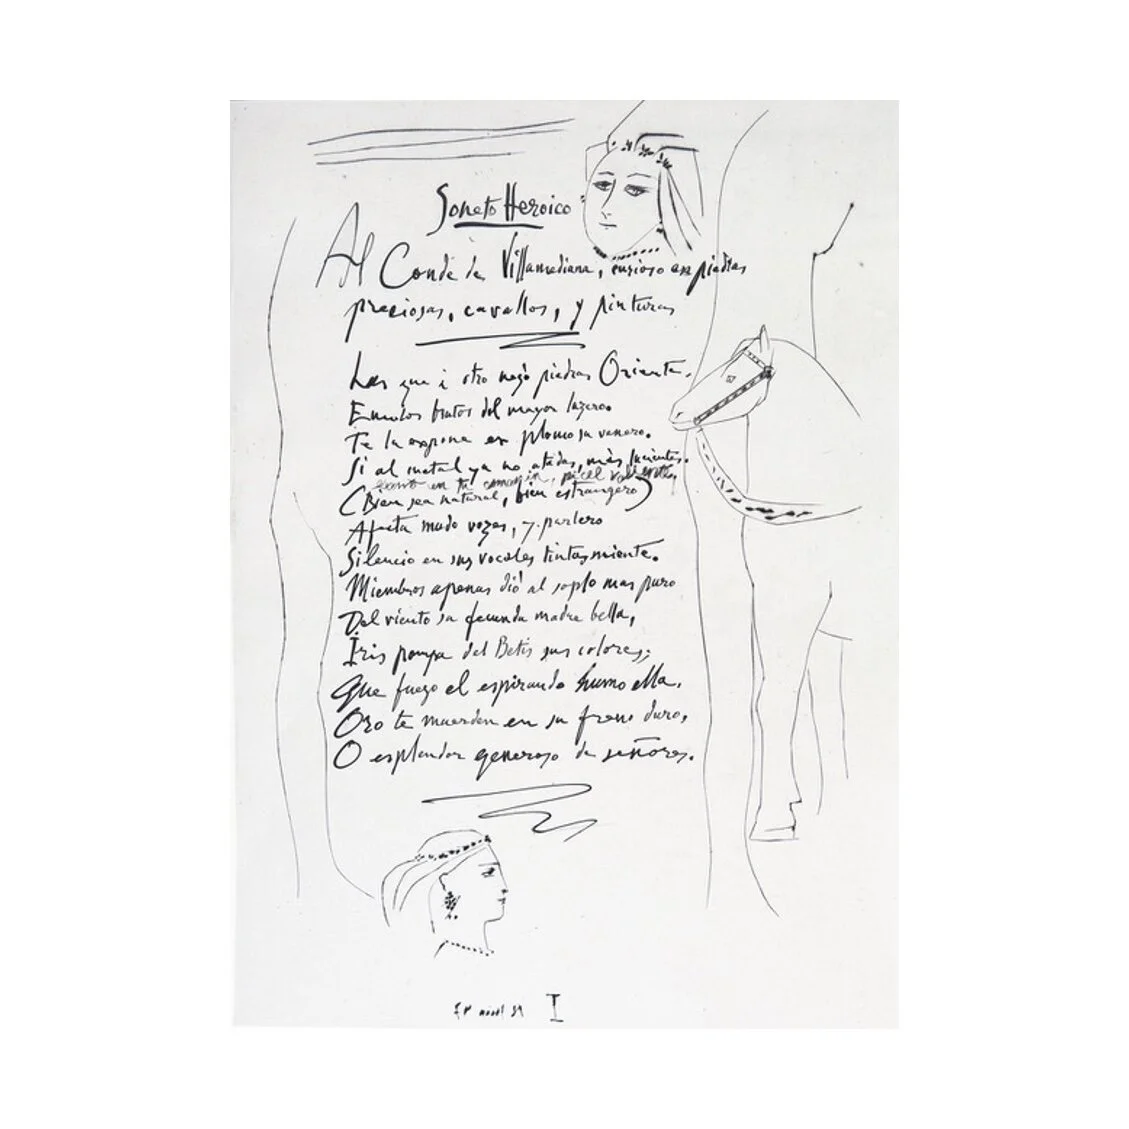 Soneto Heroico
Al Conde de Villamediana, curioso en piedras
preciosas, cavallos, y pinturas
Las que a otro negò piedras Oriente.
Emulos brutos del mayor luzero.
Te la expone en plomo su venero.
Si al metal ya no atadas, màs lucientes.
en tu camarin, pincel valiente,
(Bien sea natural, bien estrangero)
Afecta mudo vozes, y parlero
Silencio en sus vocales tintas miente.
Miembros apenas diò al soplo mas puro
Del viento su fecunda madre bella,
Iris pompa del Betis sus colores;
Que fuego el espirando humo ella,
Oro te muerden en su freno duro,
O esplendor generoso de señores.
I